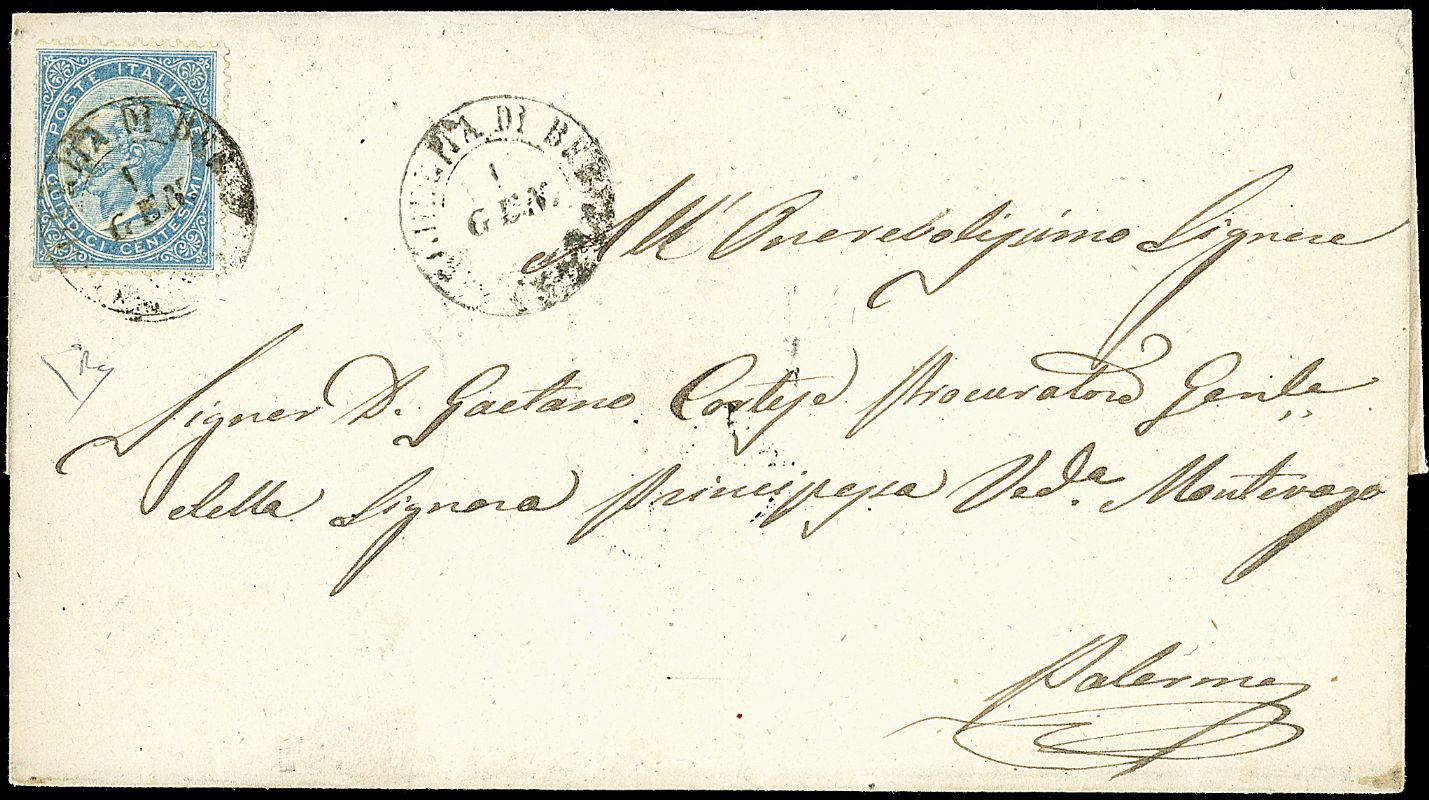 POSTE ITALIANE
QUINDICI CENTESIMI
MARGHERITA DI BE
1
GEN.
All' Onorevolissimo Signore
Signor D. Gaetano Cortese Procuratore Genle
della Signora Principessa Veda. Montevago
Palermo